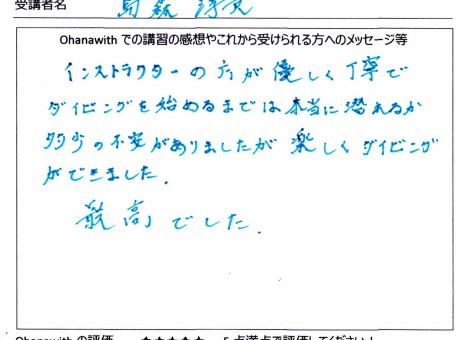 受講者名
Ohanawith での講習の感想やこれから受けられる方へのメッセージ等
インストラクターの方が優しく丁寧で
ダイビングを始めるまでは本当に潜れるか
多少の不安がありましたが楽しくダイビング
ができました.
最高でした.
Ohanawith の評価 ★★★★★ 5 点満点で評価してください!